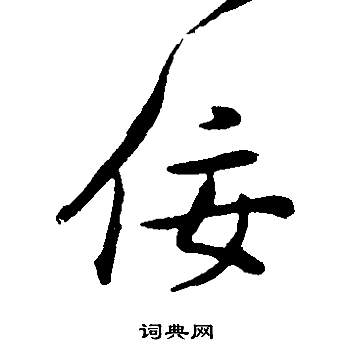 佞
词典网